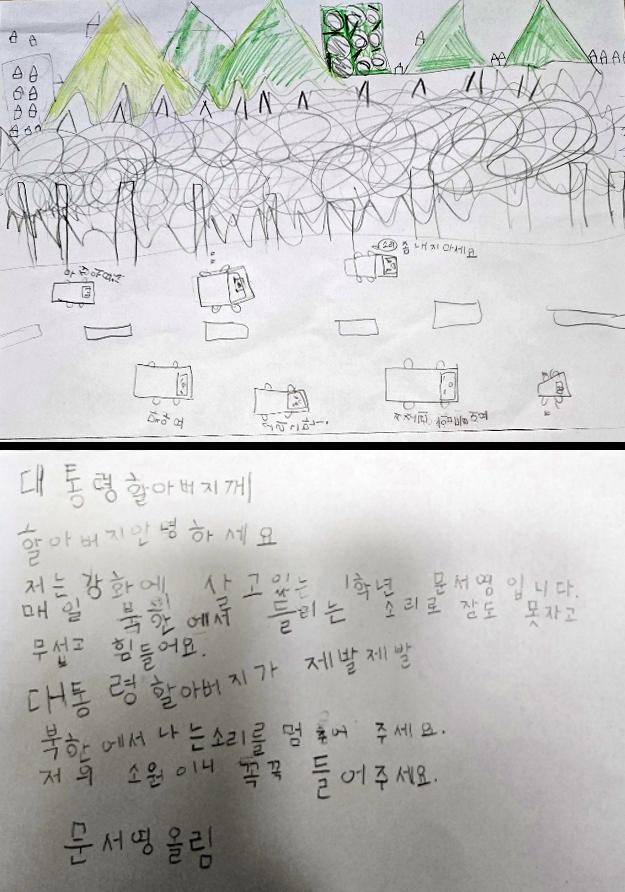 좀 내지마세요
대통령할아버지게
할아버지안녕하세요
저는 강화에 살고있는 1학년 문서영입니다.
매일 북한에서 들리는 소리로 잠도 못자고
무섭고 힘들어요.
대통령할아버지가 제발제발
북한에서나는소리를 멈추어 주세요.
저의 소원이니 꼭꼭 들어주세요.
문서영올림